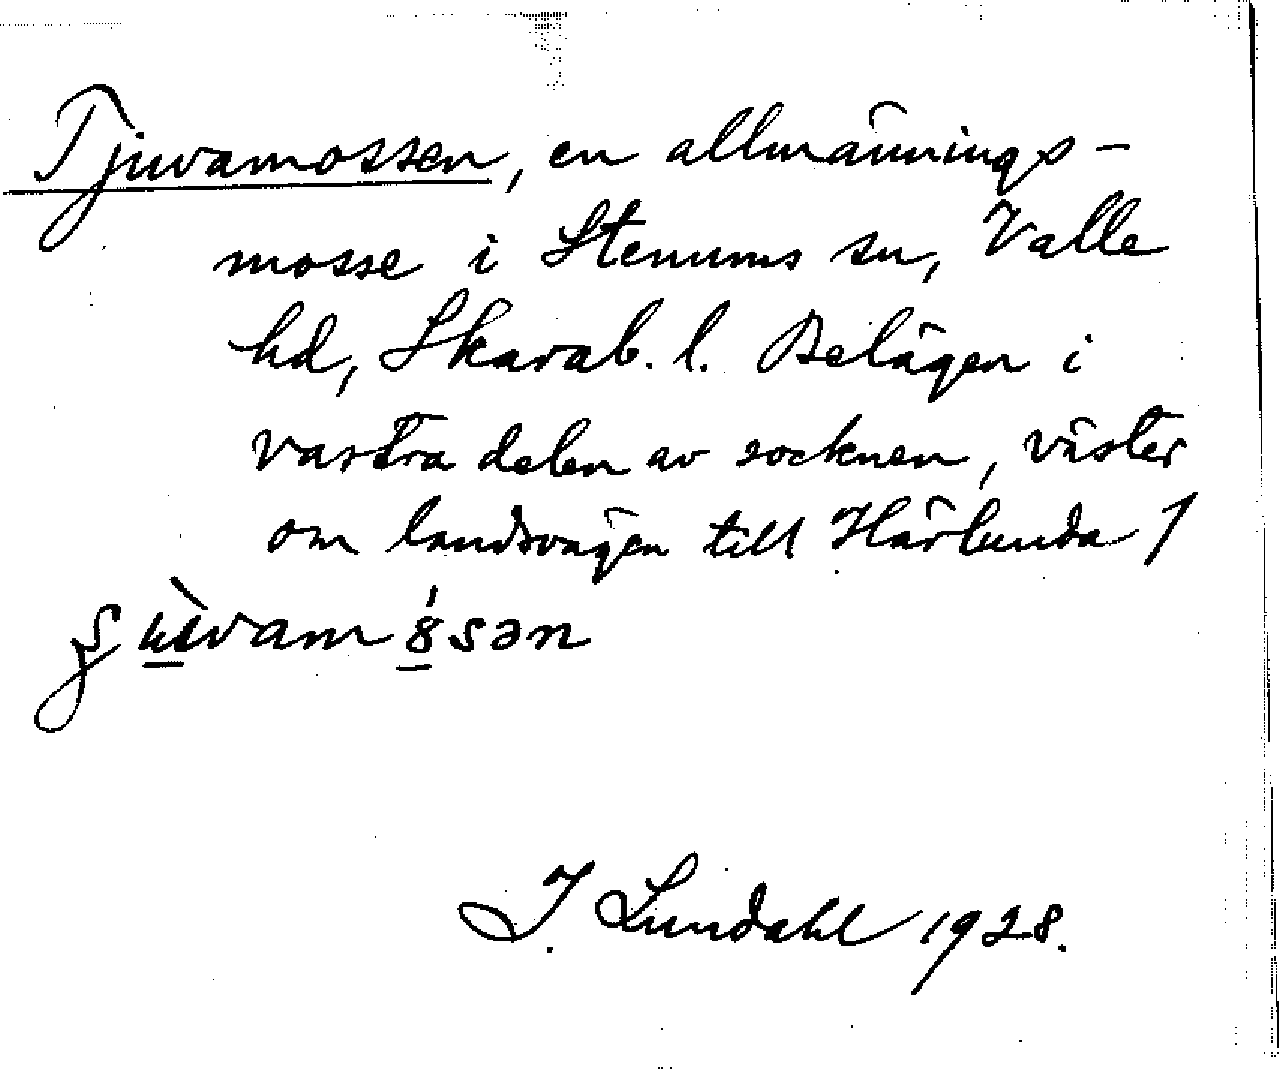 Tjuvamossen, en allmännings-
mosse i Stenums sn, Valle
hd, Skarab. l. Belägen i
västra delen av socknen, väster
om landsvägen till Härlunda /
J. Lundahl 1928.